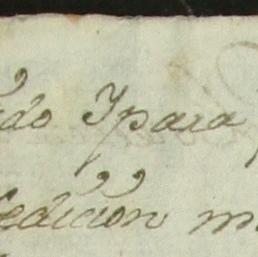 do Ypara
edicion m